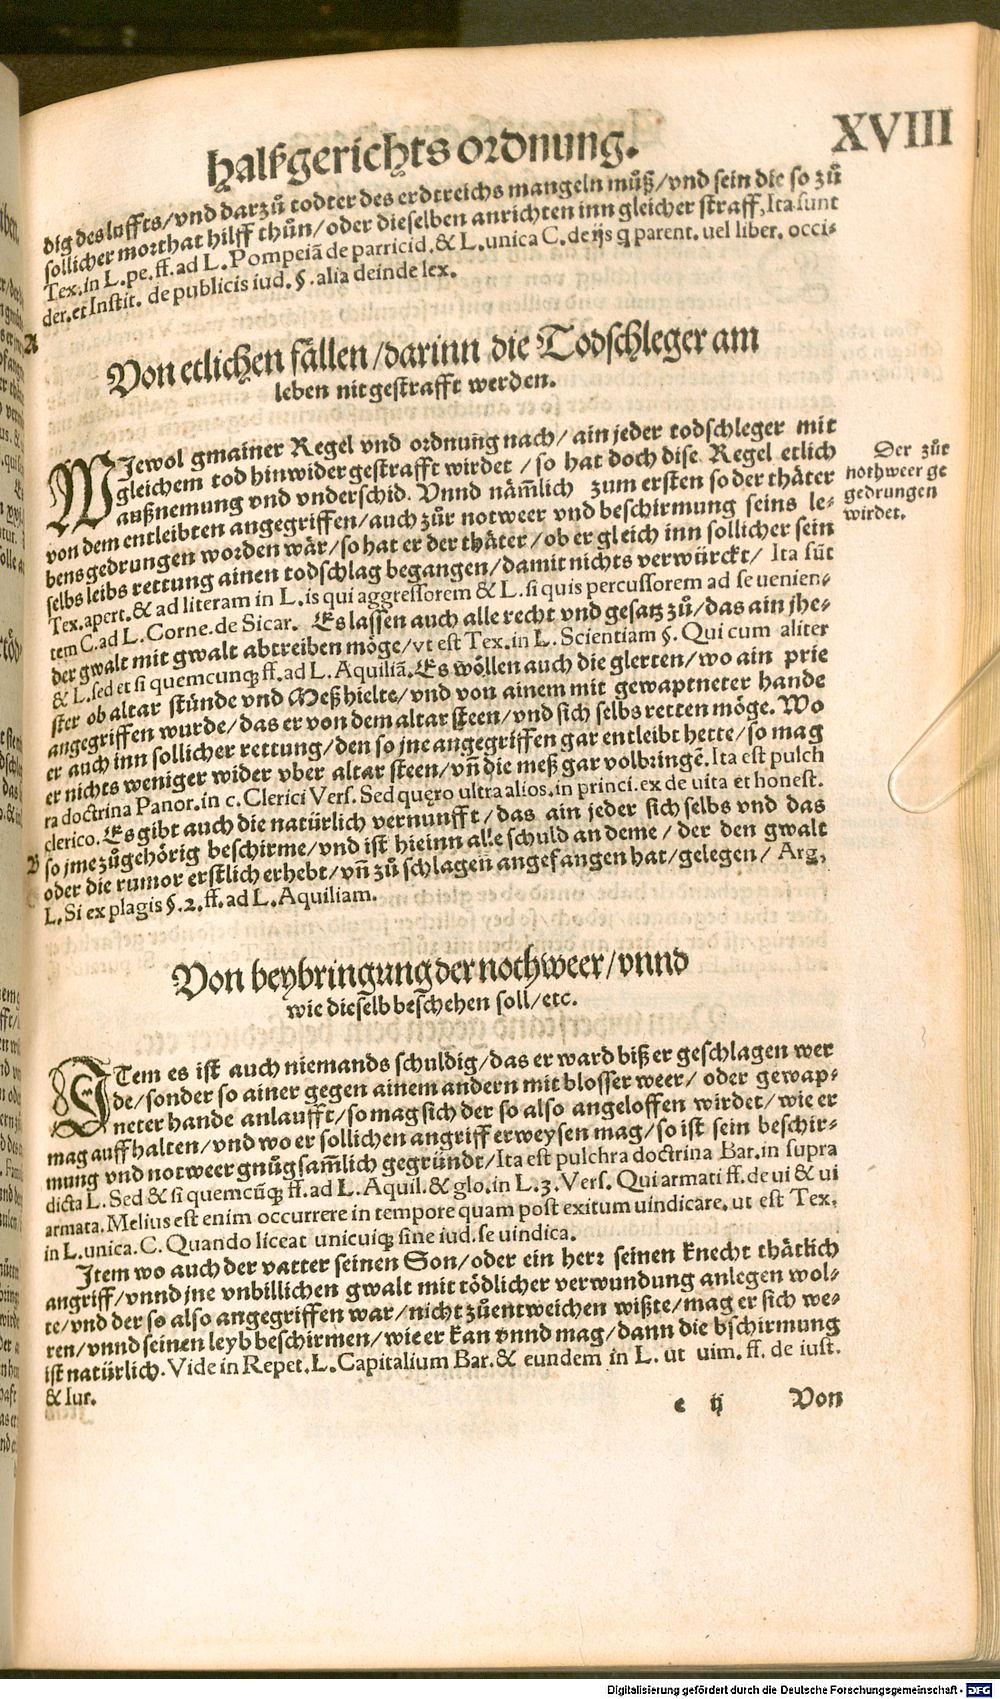 XVIII
Halßgerichts ordnung.
dig des luffts/vnd darzů todter des erdtreichs mangeln můß/vnd sein die so zů
sollicher morthat hilff thůn/oder dieselben anrichten inn gleicher straff, Ita sunt
Tex. in L. pe. ff. ad L. Pompeiã de parricid. & L. unica C. de ijs q parent. uel liber. occi-
der. et Instit. de publicis iud. §. alia deinde lex.
A
Von etlichen fällen/darinn die Todschleger am
leben nit gestrafft werden.
WIewol gmainer Regel vnd ordnung nach/ ain jeder todschleger mit
gleichem tod hinwider gestrafft wirdet /so hat doch dise Regel etlich
außnemung vnd vnderschid. Vnnd näm̃lich zum ersten so der thäter
von dem entleibten angegriffen/auch zůr notweer vnd beschirmung seins le-
bens gedrungen worden wär/so hat er der thäter/ob er gleich inn sollicher sein
selbs leibs rettung ainen todschlag begangen/damit nichts verwürckt/ Ita sũt
Tex. apert. & ad literam in L. is qui aggressorem & L. si quis percussorem ad se uenien-
tem C. ad L. Corne. de Sicar. Es lassen auch alle recht vnd gesatz zů/das ain jhe-
der gwalt mit gwalt abtreiben möge/vt est Tex. in L. Scientiam §. Qui cum aliter
& L. sed et si quemcunq; ff. ad L. Aquiliã. Es wöllen auch die glerten/wo ain prie
ster ob altar stünde vnd Meß hielte/vnd von ainem mit gewaptneter hande
angegriffen wurde/das er von dem altar steen/vnd sich selbs retten möge. Wo
er auch inn sollicher rettung/den so jne angegriffen gar entleibt hette/so mag
er nichts weniger wider vber altar steen/vñ die meß gar volbringẽ. Ita est pulch
ra doctrina Panor. in c. Clerici Vers. Sed quęro ultra alios. in princi. ex de uita et honest.
clerico. Es gibt auch die natürlich vernunfft/das ain jeder sich selbs vnd das
B
so jme zůgehörig beschirme/vnd ist hieinn alle schuld an deme/ der den gwalt
oder die rumor erstlich erhebt/vñ zů schlagen angefangen hat/gelegen/ Arg,
L. Si ex plagis §. 2. ff. ad L. Aquiliam.
Der zůr
nothweer ge
gedrungen
wirdet.
Von beybringung der nothweer/vnnd
wie dieselb beschehen soll/etc.
ITem es ist auch niemands schuldig/das er ward biß er geschlagen wer
de/sonder so ainer gegen ainem andern mit blosser weer/ oder gewap-
neter hande anlaufft/so mag sich der so also angeloffen wirdet/wie er
mag auffhalten/vnd wo er sollichen angriff erweysen mag/so ist sein beschir-
mung vnd notweer gnůgsam̃lich gegründt/Ita est pulchra doctrina Bar. in supra
dicta L. Sed & si quemcũq; ff. ad L. Aquil. & glo. in L. 3. Vers. Qui armati ff. de ui & ui
armata. Melius est enim occurrere in tempore quam post exitum uindicare. ut est Tex.
in L. unica. C. Quando liceat unicuiq; sine iud. se uindica.
Item wo auch der vatter seinen Son/oder ein herr seinen knecht thätlich
angriff/vnnd jne vnbillichen gwalt mit tödlicher verwundung anlegen wol-
te/vnd der so also angegriffen war/nicht zůentweichen wißte/mag er sich we-
ren/vnnd seinen leyb beschirmen/wie er kan vnnd mag/dann die bschirmung
ist natürlich. Vide in Repet. L. Capitalium Bar. & eundem in L. ut uim. ff. de iust.
& Iur.
e ij
Von
Digitalisierung gefördert durch die Deutsche Forschungsgemeinschaft - DFG